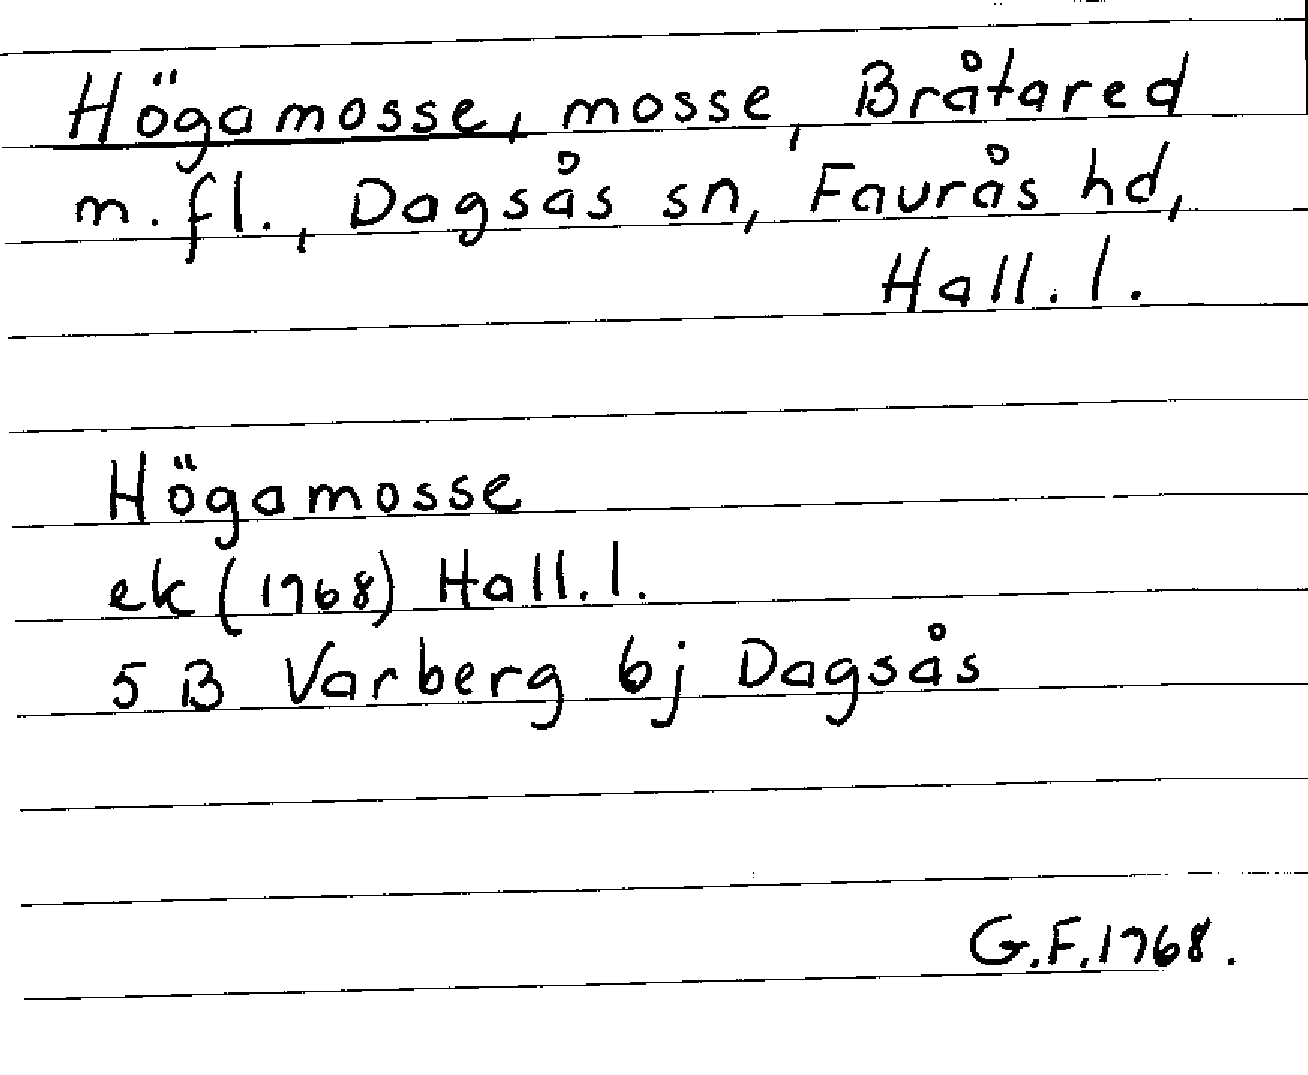 Högamosse, mosse, Bråtared
m.fl., Dagsås sn, Faurås hd,
Hall.l.
Högamosse
ek (1768) Hall.l.
5 B Varberg 6j Dagsås
G.F.1768.